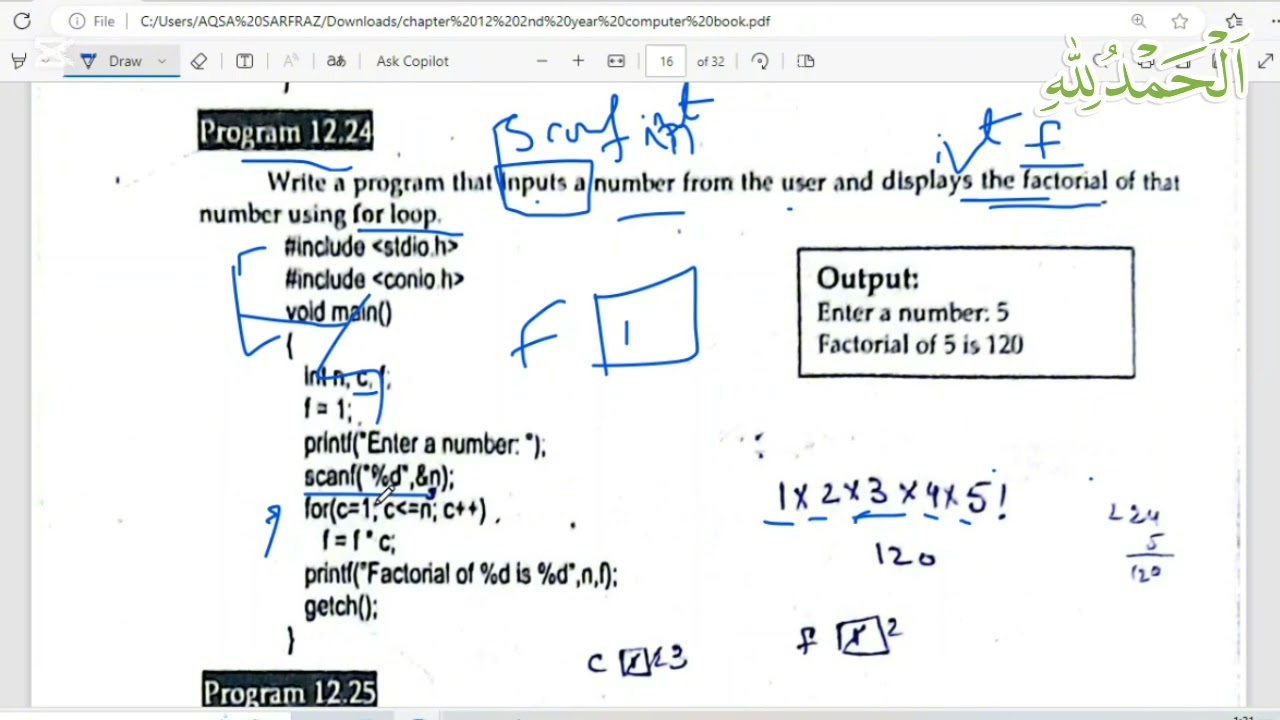 File C:/Users/AQSA%20SARFRAZ/Downloads/chapter%2012%202nd%20year%20computer%20book.pdf
Draw Ask Copilot 16 of 32
اَلْحَمْدُلِلّٰهِ
}
Program 12.24
Scanf int
int f
Write a program that inputs a number from the user and displays the factorial of that
number using for loop.
#include <stdio.h>
#include <conio.h>
void main()
{
int n, c, f;
f = 1;
printf("Enter a number: ");
scanf("%d",&n);
for(c=1; c<=n; c++)
f = f * c;
printf("Factorial of %d is %d",n,f);
getch();
}
f 1
Output:
Enter a number: 5
Factorial of 5 is 120
1 x 2 x 3 x 4 x 5!
120
24
5
120
c 1 2 3
f 1 2
Program 12.25